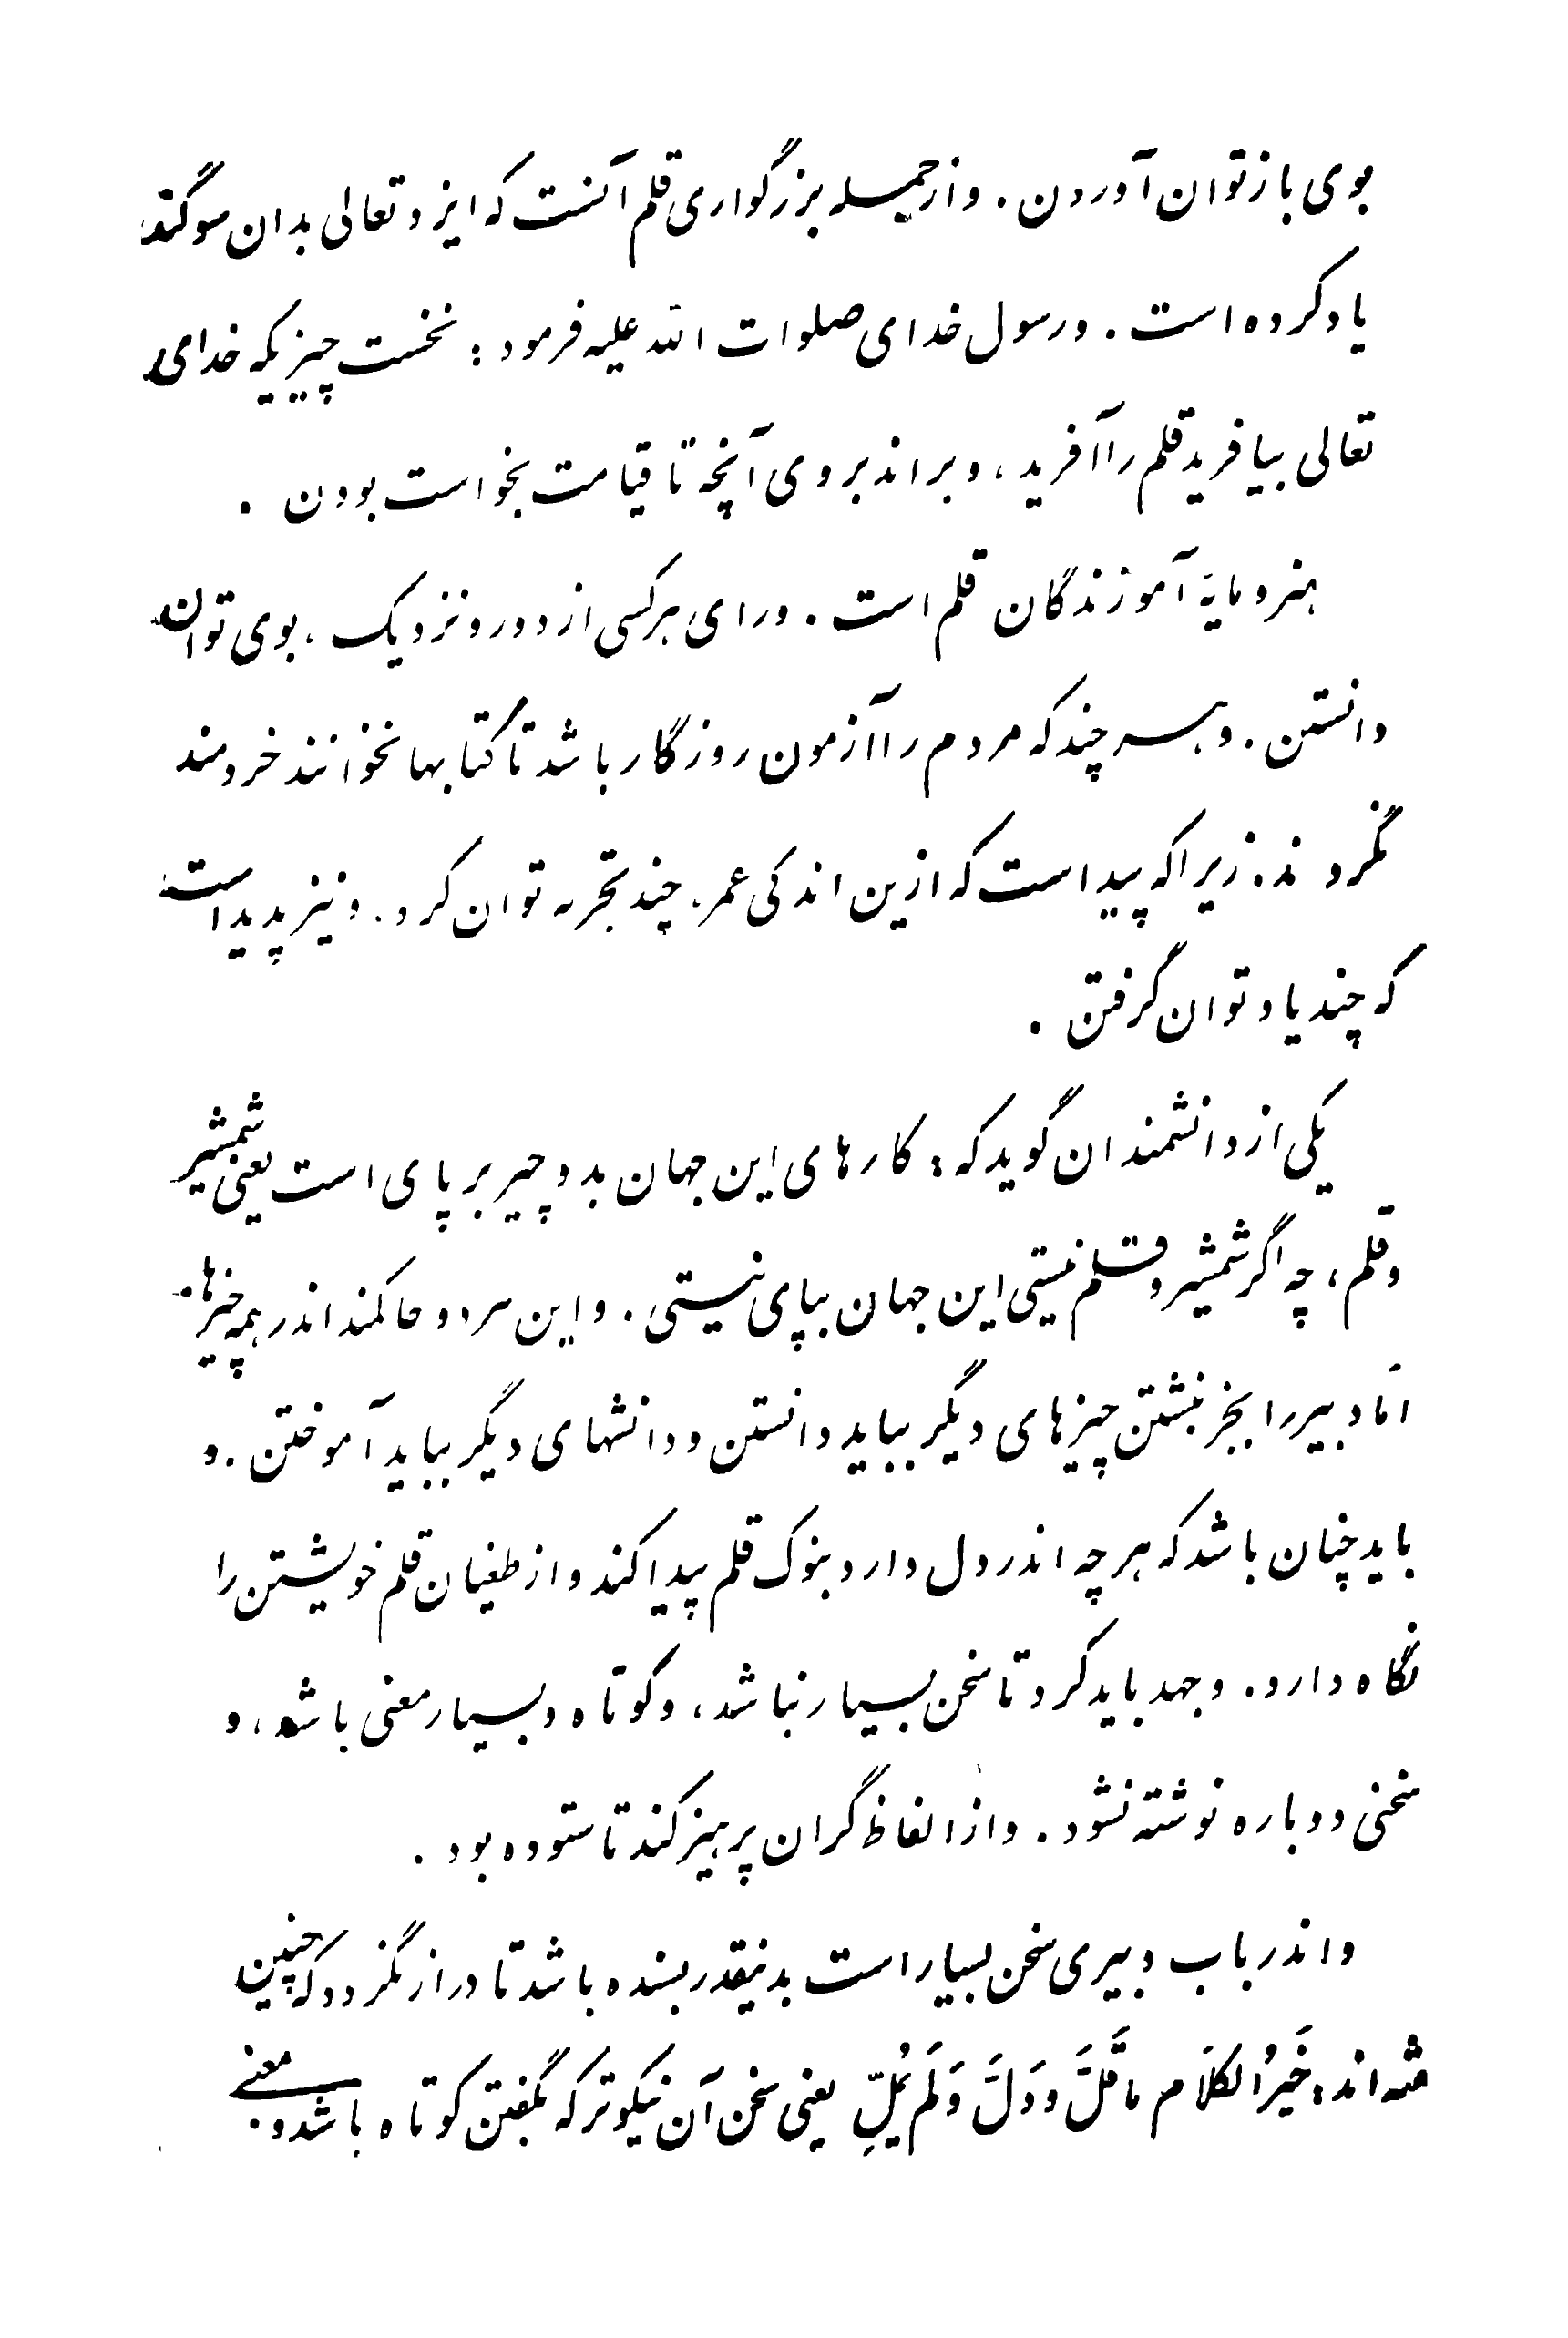 بوی باز توان آوردن . و از جمله بزرگواری قلم آنست که ایزد تعالی بدان سوگند
یاد کرده است . و رسول خدای صلوات الله علیه فرمود : نخست چیزیکه خدای
تعالی بیافرید قلم را آفرید ، و براند بروی آنچه تا قیامت بخواست بودن .
هنر و مایهٔ آموزندگان قلم است . و رای هر کسی از دور و نزدیک ، بوی توان
دانستن . و هر چند که مردم را آزمون روزگار باشد تا کتابها نخوانند خردمند
نگردند . زیرا که پیداست که ازین اندکی عمر، چند تجربه توان کرد . و نیز پدید است
که چند یاد توان گرفتن .
یکی از دانشمندان گوید که : کارهای این جهان بدو چیز بر پای است یعنی شمشیر
و قلم ، چه اگر شمشیر و قلم نیستی این جهان بپای نیستی . و این هر دو حاکمند اندر همه چیزها .
امّا دبیر را بجز نبشتن چیزهای دیگر بباید دانستن و دانشهای دیگر بباید آموختن . و
باید چنان باشد که هر چه اندر دل دارد بنوک قلم پیدا کند و از طغیان قلم خویشتن را
نگاه دارد . و جهد باید کرد تا سخن بسیار نباشد ، و کوتاه و بسیار معنی باشد ، و
سخنی دوباره نوشته نشود . و از الفاظ گران پرهیز کند تا ستوده بود .
و اندر باب دبیری سخن بسیار است بدینقدر بسنده باشد تا دراز نگردد که چنین
گفته اند : خَیرُ الکلَام ماقَلَّ و دَلَّ وَ لَم یُمِلّ یعنی سخن آن نیکوتر که بگفتن کوتاه باشد و بمعنی